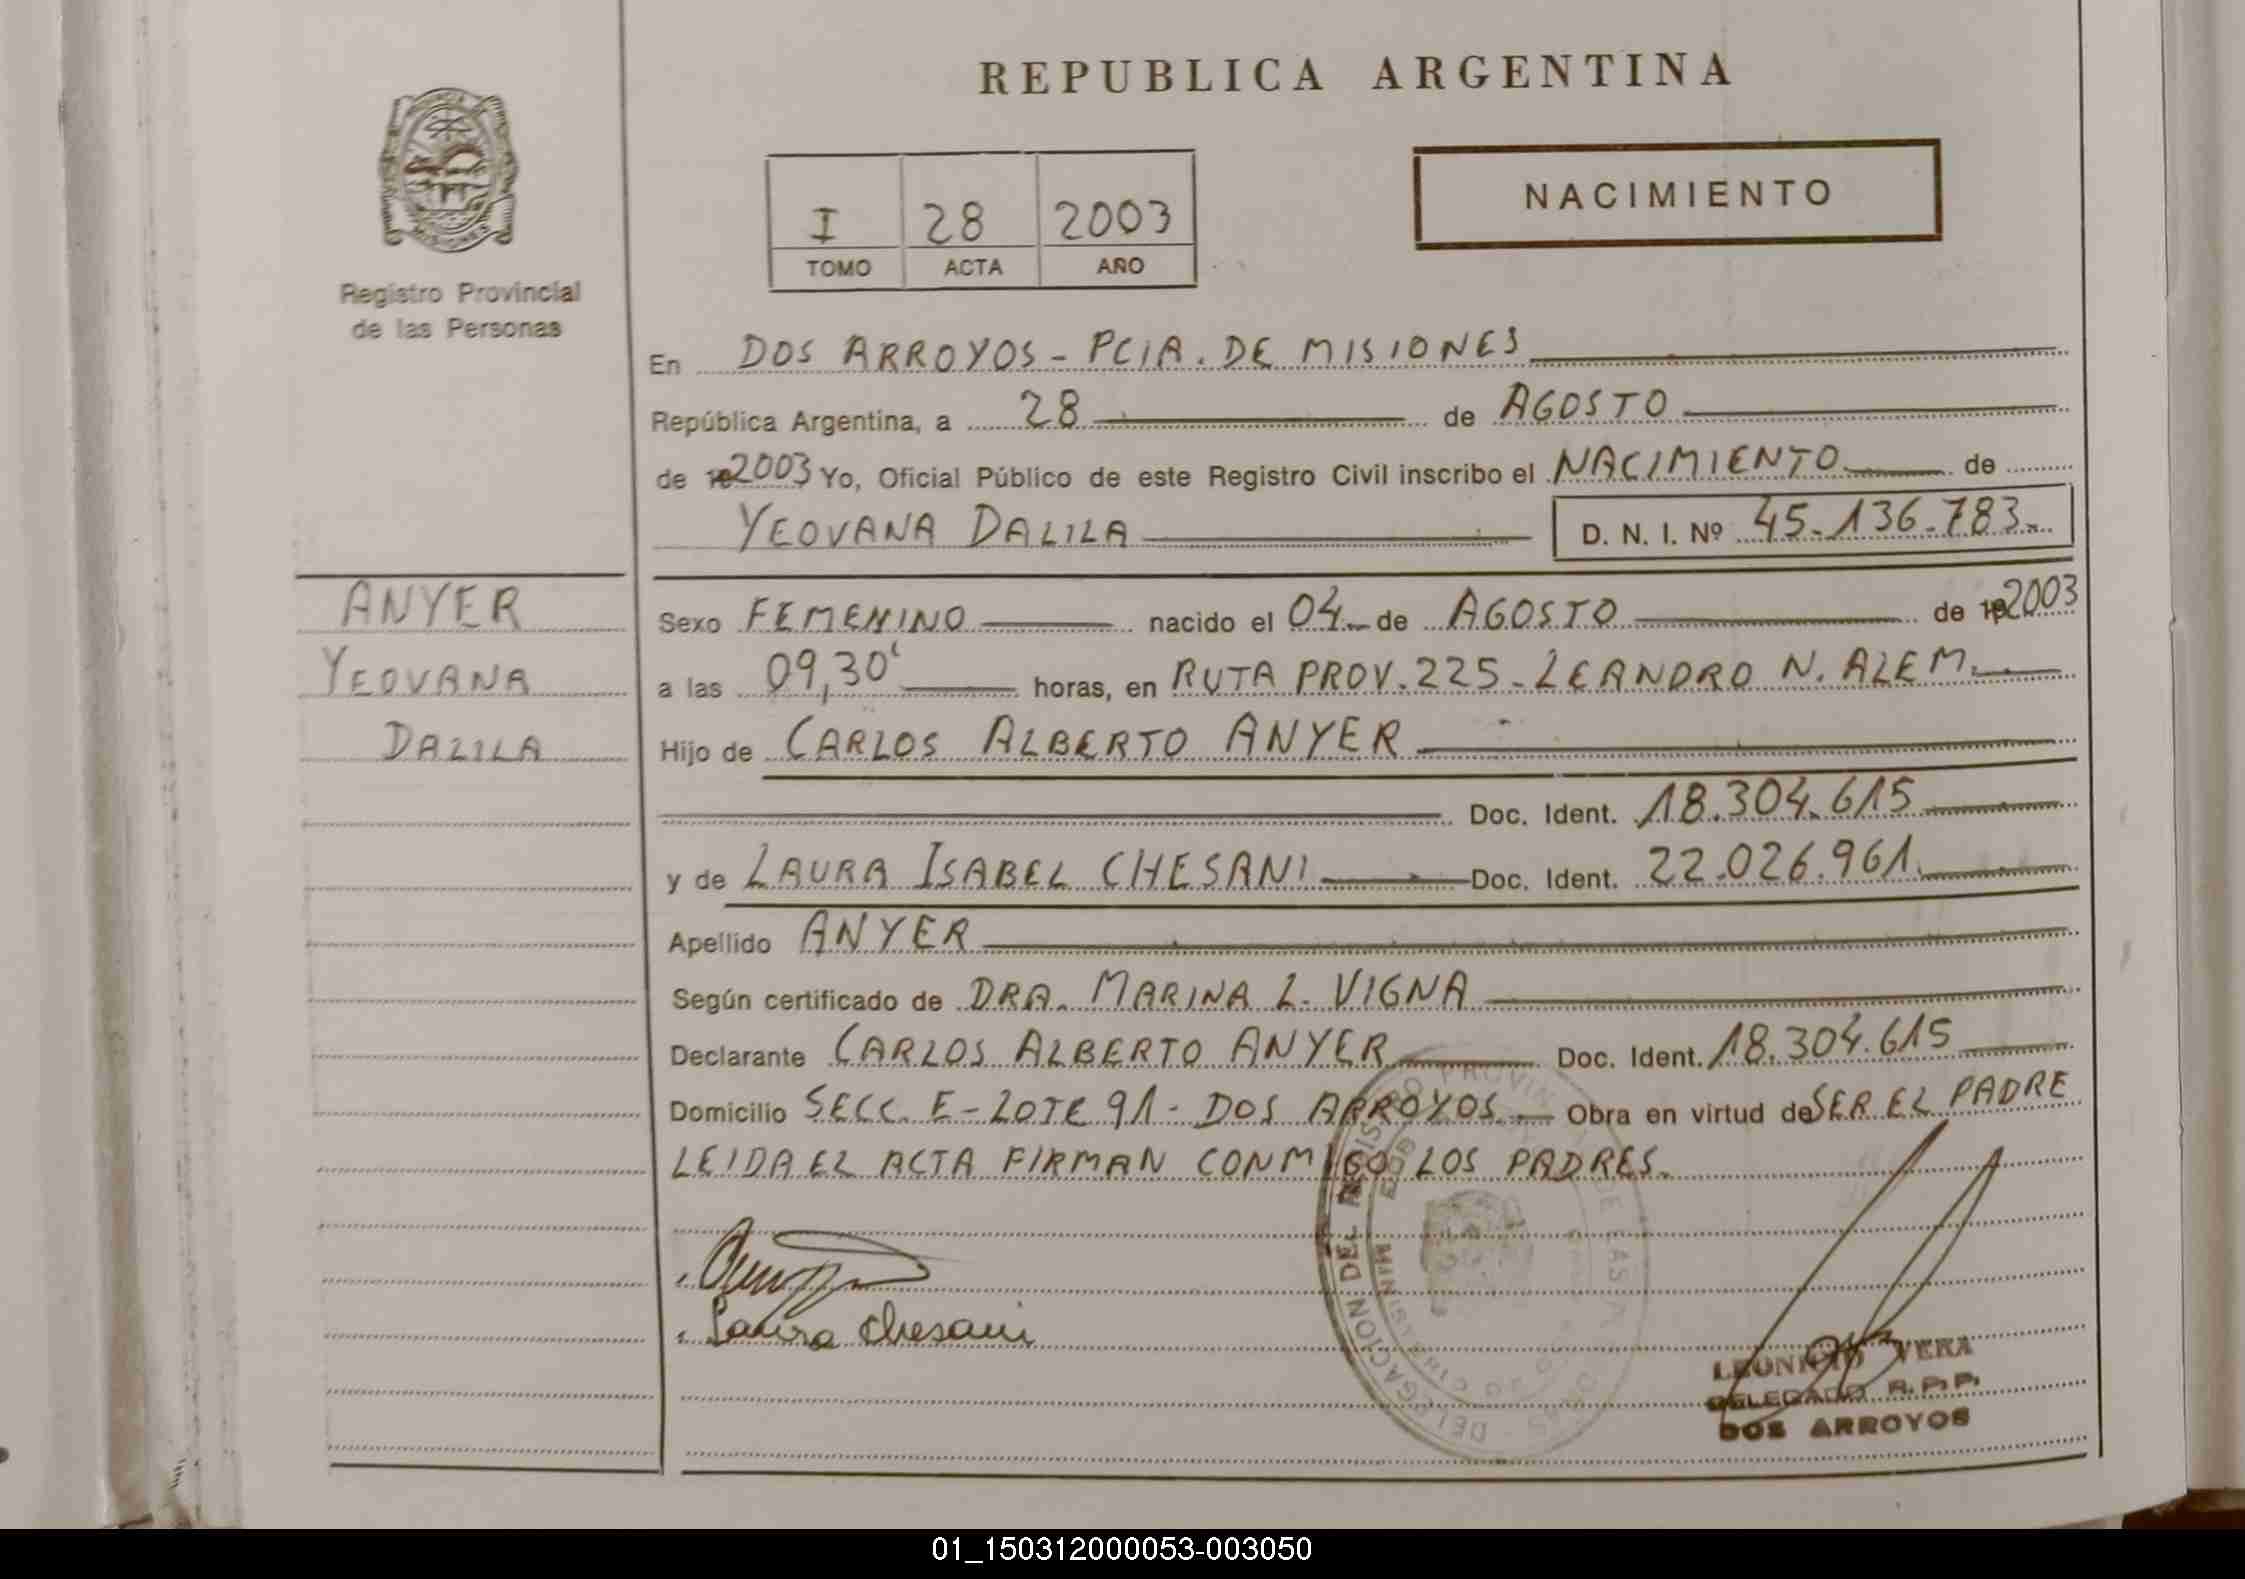 REPUBLICA ARGENTINA
NACIMIENTO
I 28 2003
TOMO ACTA AÑO
Registro Provincial
de las Personas
En DOS ARROYOS - PCIA. DE MISIONES
República Argentina, a 28 de AGOSTO
de 2003 Yo, Oficial Público de este Registro Civil inscribo el NACIMIENTO de
YEOVANA DALILA D. N. I. Nº 45.136.783.-
ANYER
YEOVANA
DALILA
Sexo FEMENINO nacido el 04 de AGOSTO de 2003
a las 09,30' horas, en RUTA PROV. 225 - LEANDRO N. ALEM.
Hijo de CARLOS ALBERTO ANYER
Doc. Ident. 18.304.615
y de LAURA ISABEL CHESANI Doc. Ident. 22.026.961.
Apellido ANYER
Según certificado de DRA. MARINA L. VIGNA
Declarante CARLOS ALBERTO ANYER Doc. Ident. 18.304.615
Domicilio SECC. E - LOTE 91 - DOS ARROYOS. Obra en virtud de SER EL PADRE
LEIDA EL ACTA FIRMAN CONMIGO LOS PADRES.
DELEGACION DEL REGISTRO PROVIN
Laura Chesani
VERA
DELEGADO R.P.P.
DOS ARROYOS
01_150312000053-003050